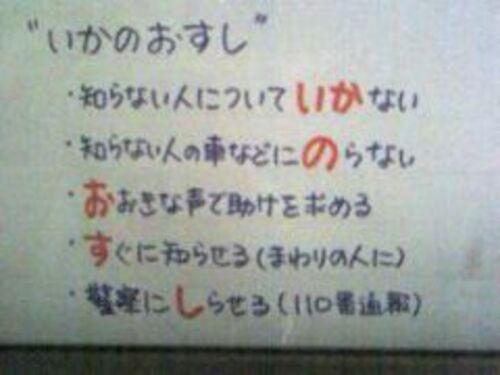 "いかのおすし"
・知らない人についていかない
・知らない人の車などにのらない
・おおきな声で助けを求める
・すぐに知らせる(まわりの人に)
・警察にしらせる(110番通報)